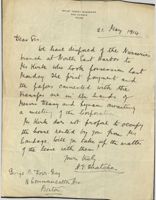 21 May 1914
Dear Sir,
We have disposed of the Nurseries
branch at North East Harbor to
Mr Kirk who took possession last
Monday. The first payment and
the papers connected with the
transfer are in the hands of
Messrs Deasy and Lynam awaiting
a meeting of the Corporation.
Mr Kirk does not propose to occupy
the house rented by you from Mr
so will you take up the matter
of the lease with them
Yours truly
George B. Dorr Esq
18 Commonwealth Ave
Boston